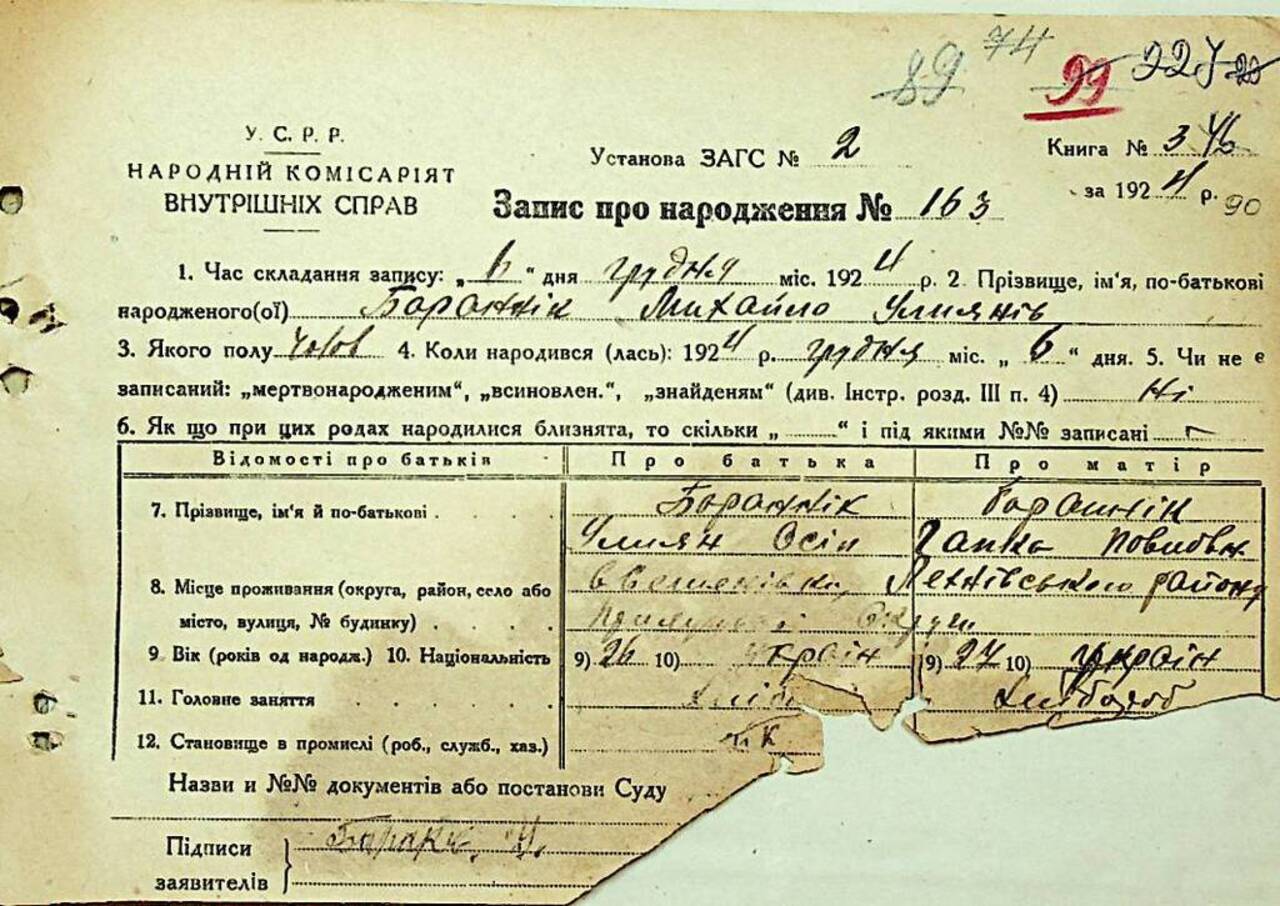 89 74 99 227
У. С. Р. Р.
НАРОДНІЙ КОМІСАРІЯТ
ВНУТРІШНІХ СПРАВ
Установа ЗАГС № 2
Книга № 3
за 1924 р. 90
Запис про народження № 163
1. Час складання запису: „6“ дня грудня міс. 1924 р. 2. Прізвище, ім'я, по-батькові
народженого(ої) Бораннік Михайло Улиянів
3. Якого полу чолов 4. Коли народився (лась): 1924 р. грудня міс. „6“ дня. 5. Чи не є
записаний: „мертвонародженим“, „всиновлен.“, „знайденям“ (див. Інстр. розд. III п. 4) Ні
6. Як що при цих родах народилися близнята, то скільки „ “ і під якими №№ записані
Відомості про батьків Про батька Про матір
7. Прізвище, ім'я й по-батькові Бораннік Бораннік
Улиян Осіп Гапка
8. Місце проживання (округа, район, село або
місто, вулиця, № будинку) району
Округи
9. Вік (років од народж.) 10. Національність 9) 26 10) україн 9) 27 10) україн
11. Головне заняття Хліб Хлібороб
12. Становище в промислі (роб., служб., хаз.)
Назви и №№ документів або постанови Суду
Підписи
заявителів